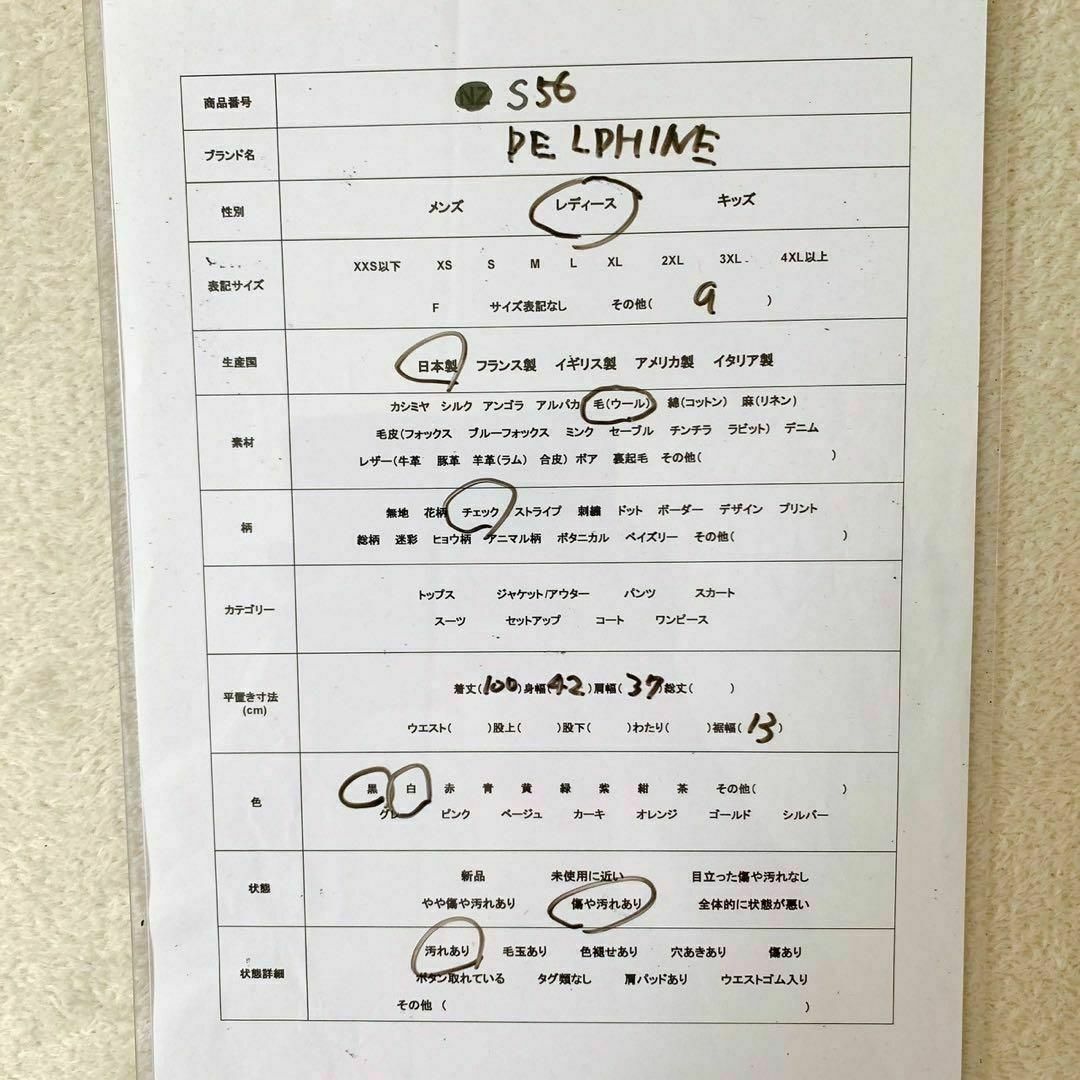 商品番号 NZ S56
ブランド名 DELPHINE
性別 メンズ レディース キッズ
表記サイズ XXS以下 XS S M L XL 2XL 3XL 4XL以上
F サイズ表記なし その他( 9 )
生産国 日本製 フランス製 イギリス製 アメリカ製 イタリア製
素材 カシミヤ シルク アンゴラ アルパカ 毛(ウール) 綿(コットン) 麻(リネン)
毛皮(フォックス ブルーフォックス ミンク セーブル チンチラ ラビット) デニム
レザー(牛革 豚革 羊革(ラム) 合皮) ボア 裏起毛 その他( )
柄 無地 花柄 チェック ストライプ 刺繍 ドット ボーダー デザイン プリント
総柄 迷彩 ヒョウ柄 アニマル柄 ボタニカル ペイズリー その他( )
カテゴリー トップス ジャケット/アウター パンツ スカート
スーツ セットアップ コート ワンピース
平置き寸法 (cm) 着丈(100)身幅(42)肩幅(37)総丈( )
ウエスト( )股上( )股下( )わたり( )裾幅(13)
色 黒 白 赤 青 黄 緑 紫 紺 茶 その他( )
グレー ピンク ベージュ カーキ オレンジ ゴールド シルバー
状態 新品 未使用に近い 目立った傷や汚れなし
やや傷や汚れあり 傷や汚れあり 全体的に状態が悪い
状態詳細 汚れあり 毛玉あり 色褪せあり 穴あきあり 傷あり
ボタン取れている タグ類なし 肩パッドあり ウエストゴム入り
その他 ( )